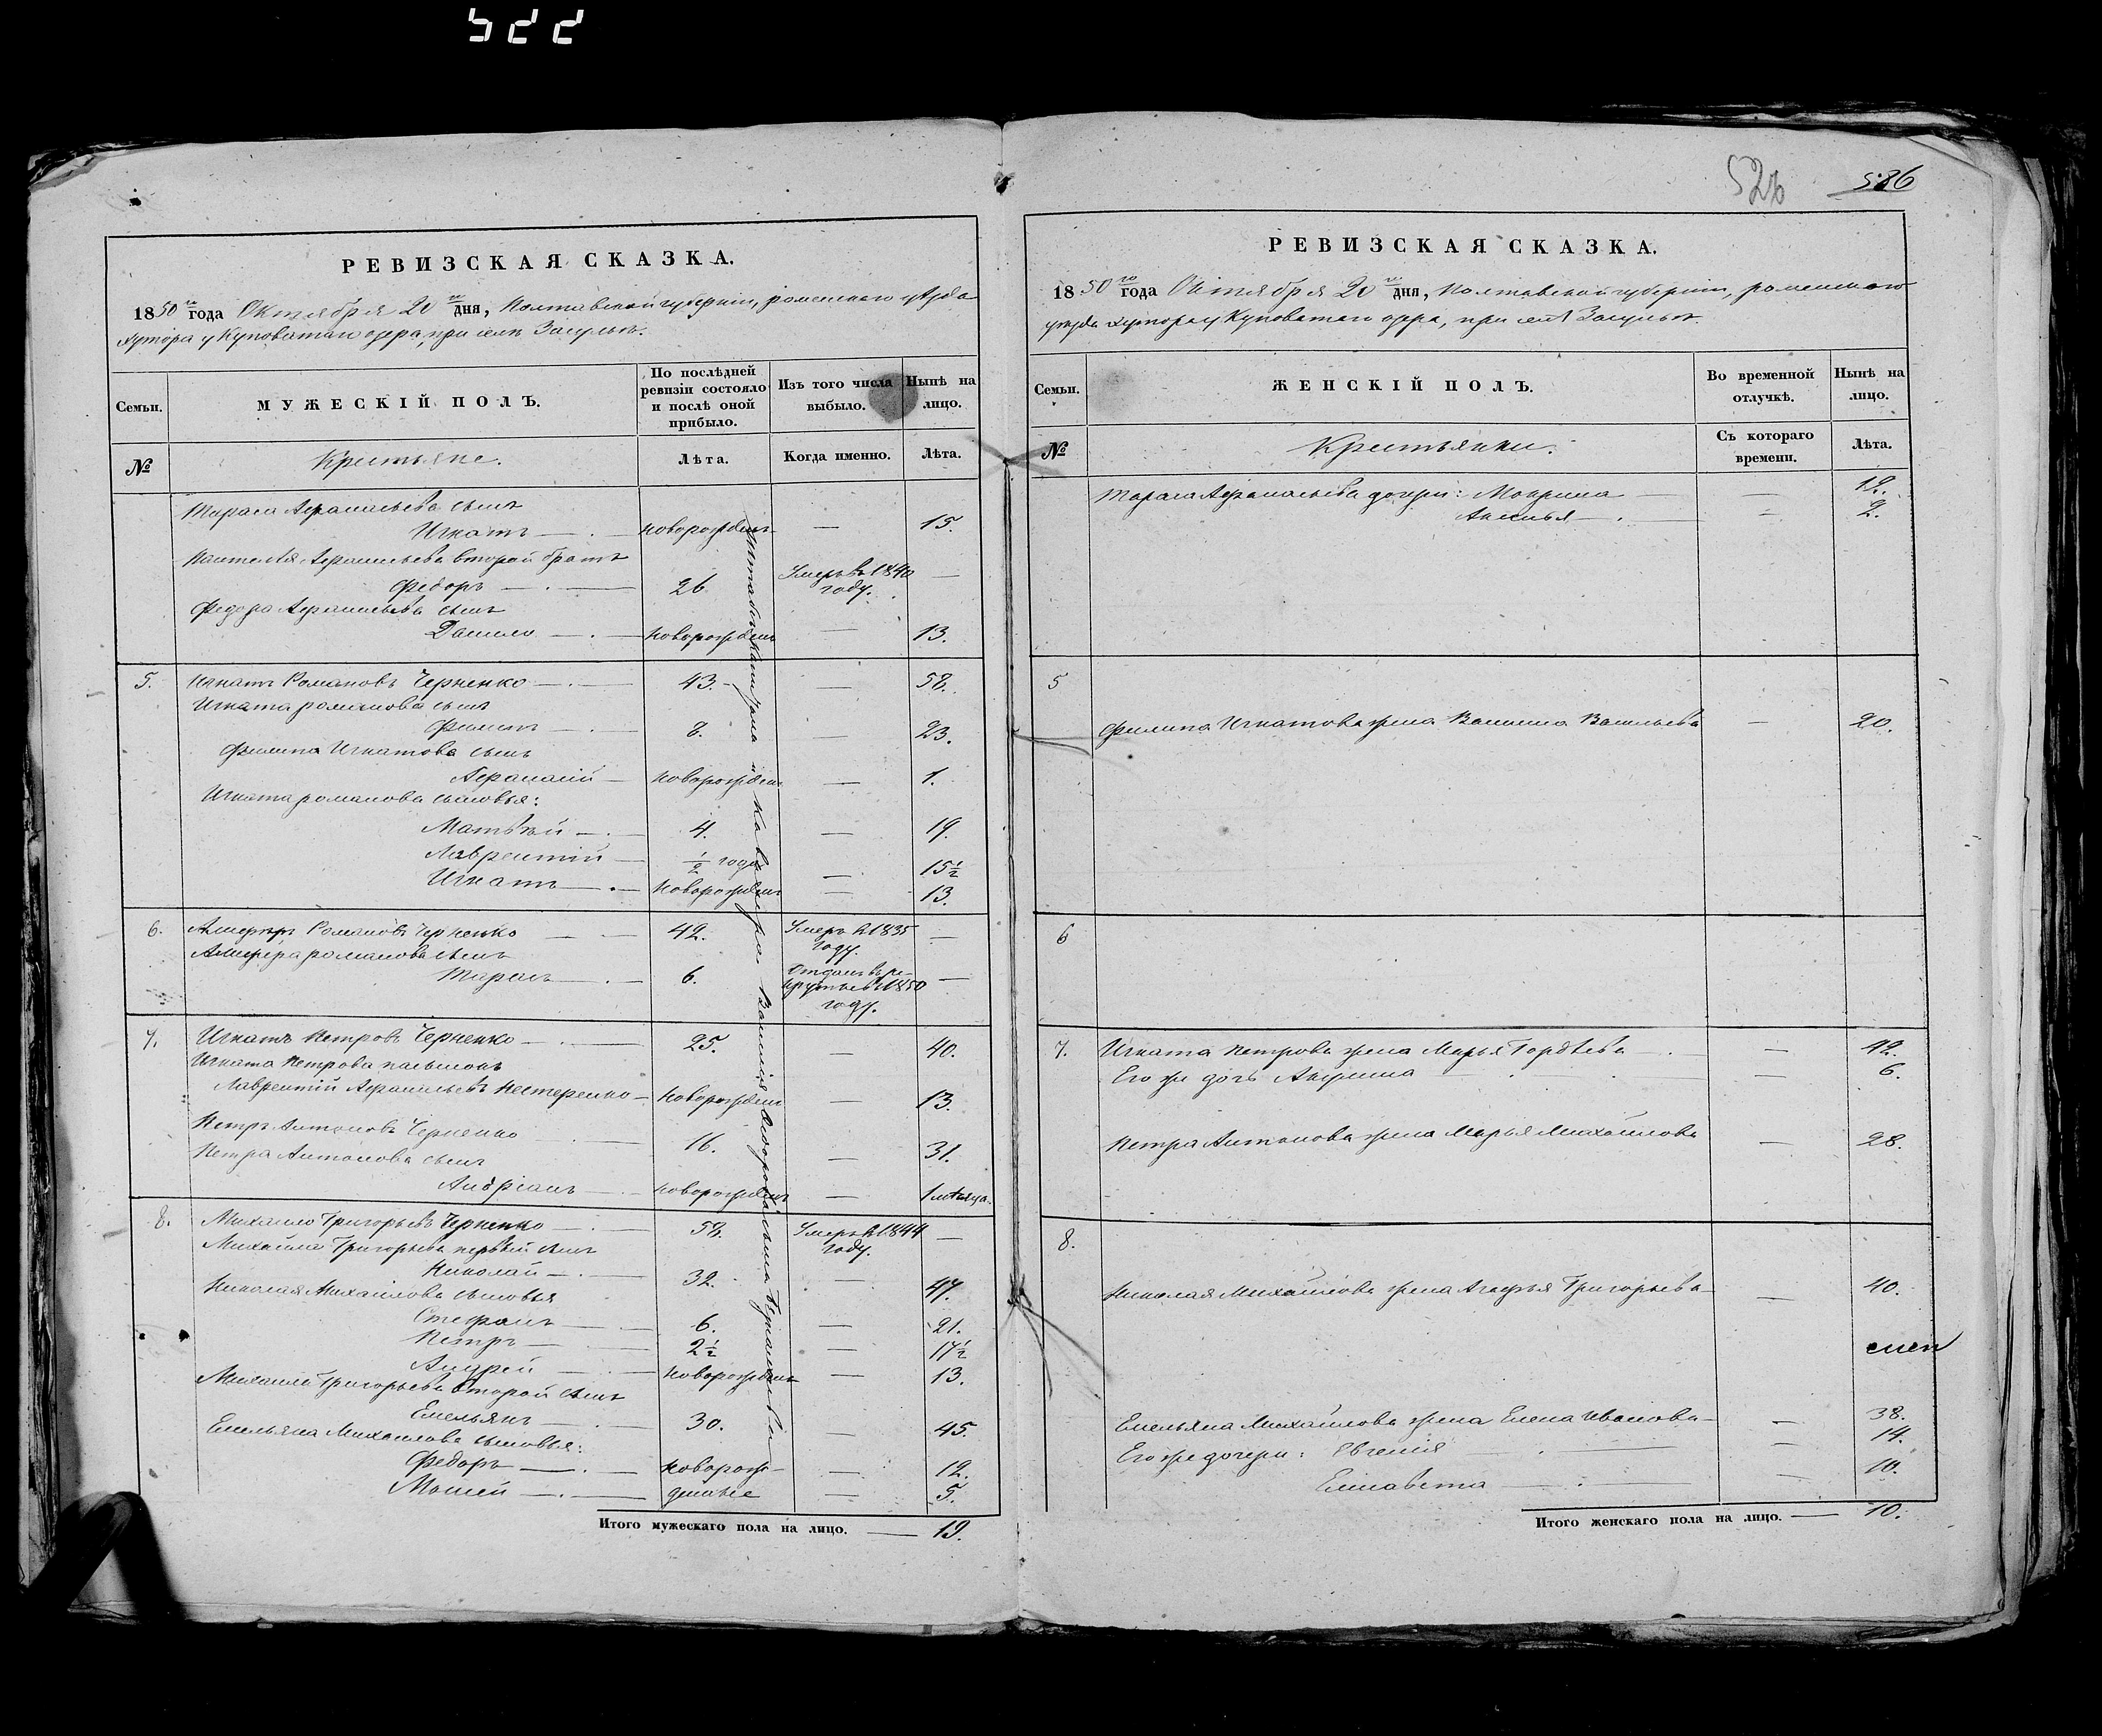 522
РЕВИЗСКАЯ СКАЗКА.
1850го года Октября 20го дня, Полтавской губернии, роменского уѣзда
хутора у Куповатаго озера, при селѣ Засульѣ.
Семьи.
МУЖЕСКІЙ ПОЛЪ.
По послѣдней
ревизіи состояло
и послѣ оной
прибыло.
Изъ того числа
выбыло.
Нынѣ на
лицо.
№
Крестьяне.
Лѣта.
Когда именно.
Лѣта.
Тараса Афанасьева сынъ
Игнатъ — новорожденъ — 15.
Пантелѣя Афанасьева второй братъ
Федоръ — 26 Умеръ въ 1840 году. —
Федора Афанасьева сынъ
Данило — новорожденъ — 13.
5. Игнатъ Романовъ Черненко — 43. — 58.
Игната романова сынъ
Филипъ — 8. — 23.
Филипа Игнатова сынъ
Афанасій — новорожденъ — 1.
Игната романова сыновья:
Матвѣй — 4. — 19.
Лаврентій — ½ года — 15½
Игнатъ — новорожденъ — 13.
6. Романовъ Черненко — 42. Умеръ въ 1835 году. —
романова сынъ
Тарасъ — 6. Отданъ въ рекруты въ 1850 году. —
7. Игнатъ Петровъ Черненко — 25. — 40.
Игната Петрова пасынокъ
Лаврентій Афанасьевъ Нестеренко — новорожденъ — 13.
Петръ Антоновъ Черненко — 16. — 31.
Петра Антонова сынъ
Андріанъ — новорожденъ — 1 мѣсяца.
8. Михайло Григорьевъ Черненко — 58. Умеръ въ 1844 году. —
Михайла Григорьева первый сынъ
Николай — 32. — 47.
Николая Михайлова сыновья
Стефанъ — 6. — 21.
Петръ — 2½ — 17½
Андрей — новорожденъ — 13.
Михайла Григорьева второй сынъ
Емельянъ — 30. — 45.
Емельяна Михайлова сыновья:
Федоръ — новорож- — 12.
Мосей — денные — 5.
Итого мужескаго пола на лицо. — 19.
Штабсъ Капитана и Кавалера Василія сына
526
586
РЕВИЗСКАЯ СКАЗКА.
1850го года Октября 20го дня, Полтавской губерніи, роменского
уѣзда хутора у Куповатаго озера, при селѣ Засульѣ.
Семьи.
ЖЕНСКІЙ ПОЛЪ.
Во временной
отлучкѣ.
Нынѣ на
лицо.
№
Крестьянки.
Съ котораго
времени.
Лѣта.
Тараса Афанасьева дочери: Мокрина — 12.
Аксинья — 2.
5
Филипа Игнатова жена Васильева — 20.
6
7. Игната Петрова жена Марья Гордѣева — 42.
Его же дочь Акулина — 6.
Петра Антонова жена Марья Михайлова — 28.
8.
Николая Михайлова жена Агафья Григорьева — 40.
Емельяна Михайлова жена Елена Иванова — 38.
Его же дочери: Евгенія — 14.
Елисавета — 10.
Итого женскаго пола на лицо. — 10.